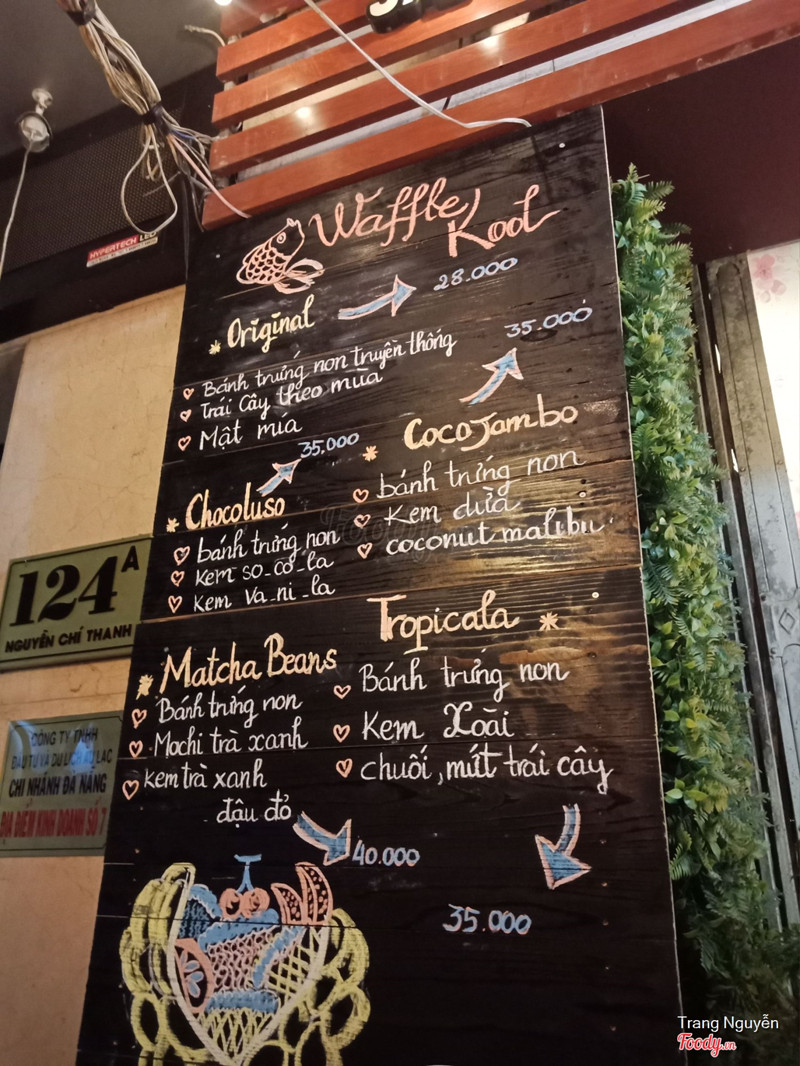 HYPERTECH LED
Waffle
Kool
Original
28.000
Bánh trứng non truyền thống
Trái Cây theo mùa
Mật mía
35.000
CocoJambo
bánh trứng non
Kem dừa
coconut malibu
35,000
Chocoluso
bánh trứng non
kem so_cô_la
kem va_ni_la
Tropicala
Bánh trứng non
Kem Xoài
chuối, mứt trái cây
35.000
Matcha Beans
Bánh trứng non
Mochi trà xanh
kem trà xanh
đậu đỏ
40.000
124A
NGUYỄN CHÍ THANH
CÔNG TY TNHH
ĐẦU TƯ VÀ DU LỊCH ÂU LẠC
CHI NHÁNH ĐÀ NẴNG
ĐỊA ĐIỂM KINH DOANH SỐ 7
Trang Nguyễn
Foody.vn